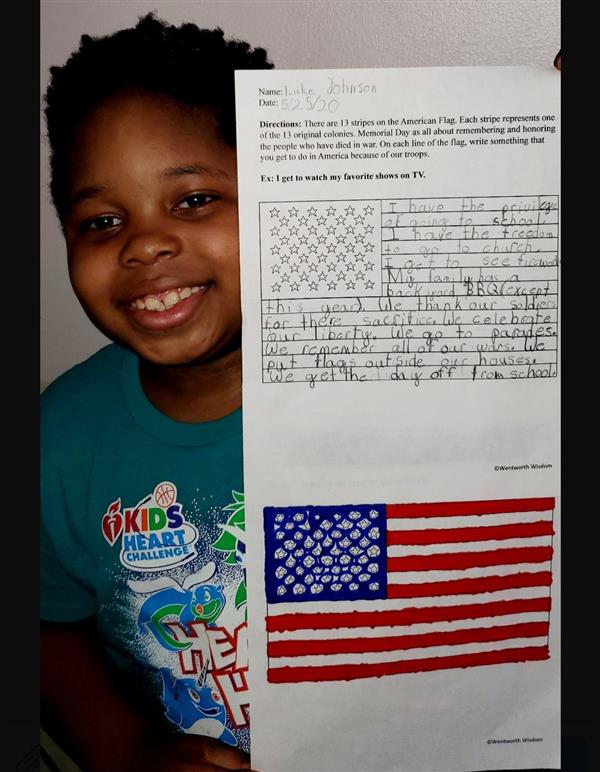 Name: Luke Johnson
Date: 5/25/20
Directions: There are 13 stripes on the American Flag. Each stripe represents one
of the 13 original colonies. Memorial Day as all about remembering and honoring
the people who have died in war. On each line of the flag, write something that
you get to do in America because of our troops.
Ex: I get to watch my favorite shows on TV.
I have the privilege
of going to school.
I have the freedom
to go to church.
I get to see firework
My family has a
backyard BBQ(except
this year). We thank our soldiers
for there sacrifice. We celebrate
our liberty. We go to parades.
We remember all of our wars. We
put flags outside our houses.
We get the day off from school.
©Wentworth Wisdom
KIDS
HEART
CHALLENGE
HE
H
©Wentworth Wisdom